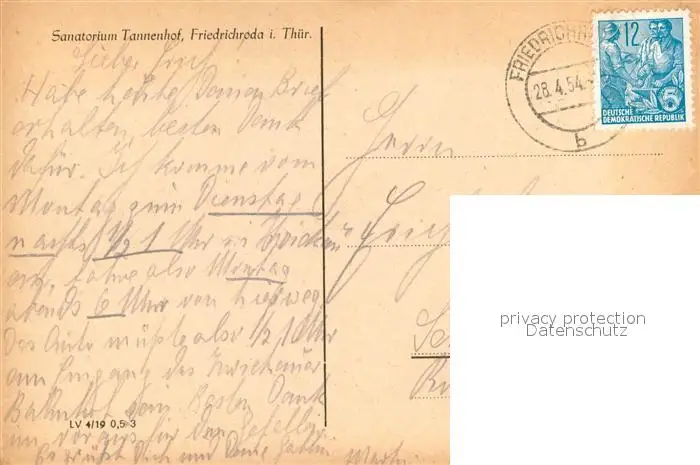 Sanatorium Tannenhof, Friedrichroda i. Thür.
Liebe
Habe heute Deinen Brief
erhalten, besten Dank
dafür. Ich komme vom
Montag zum Dienstag
nachts ½ 1 Uhr in Zwickau
an, fahre also Montag
abends 6 Uhr von hier weg.
Das Auto müßte also ½ 1 Uhr
am Eingang des Zwickauer
Bahnhof sein. Besten Dank
im voraus für den
Es grüßt Dich und Deine
LV 4/19 0,5 3
FRIEDRICHR
28.4.54
b
12
5
DEUTSCHE
DEMOKRATISCHE REPUBLIK
Herrn
privacy protection
Datenschutz